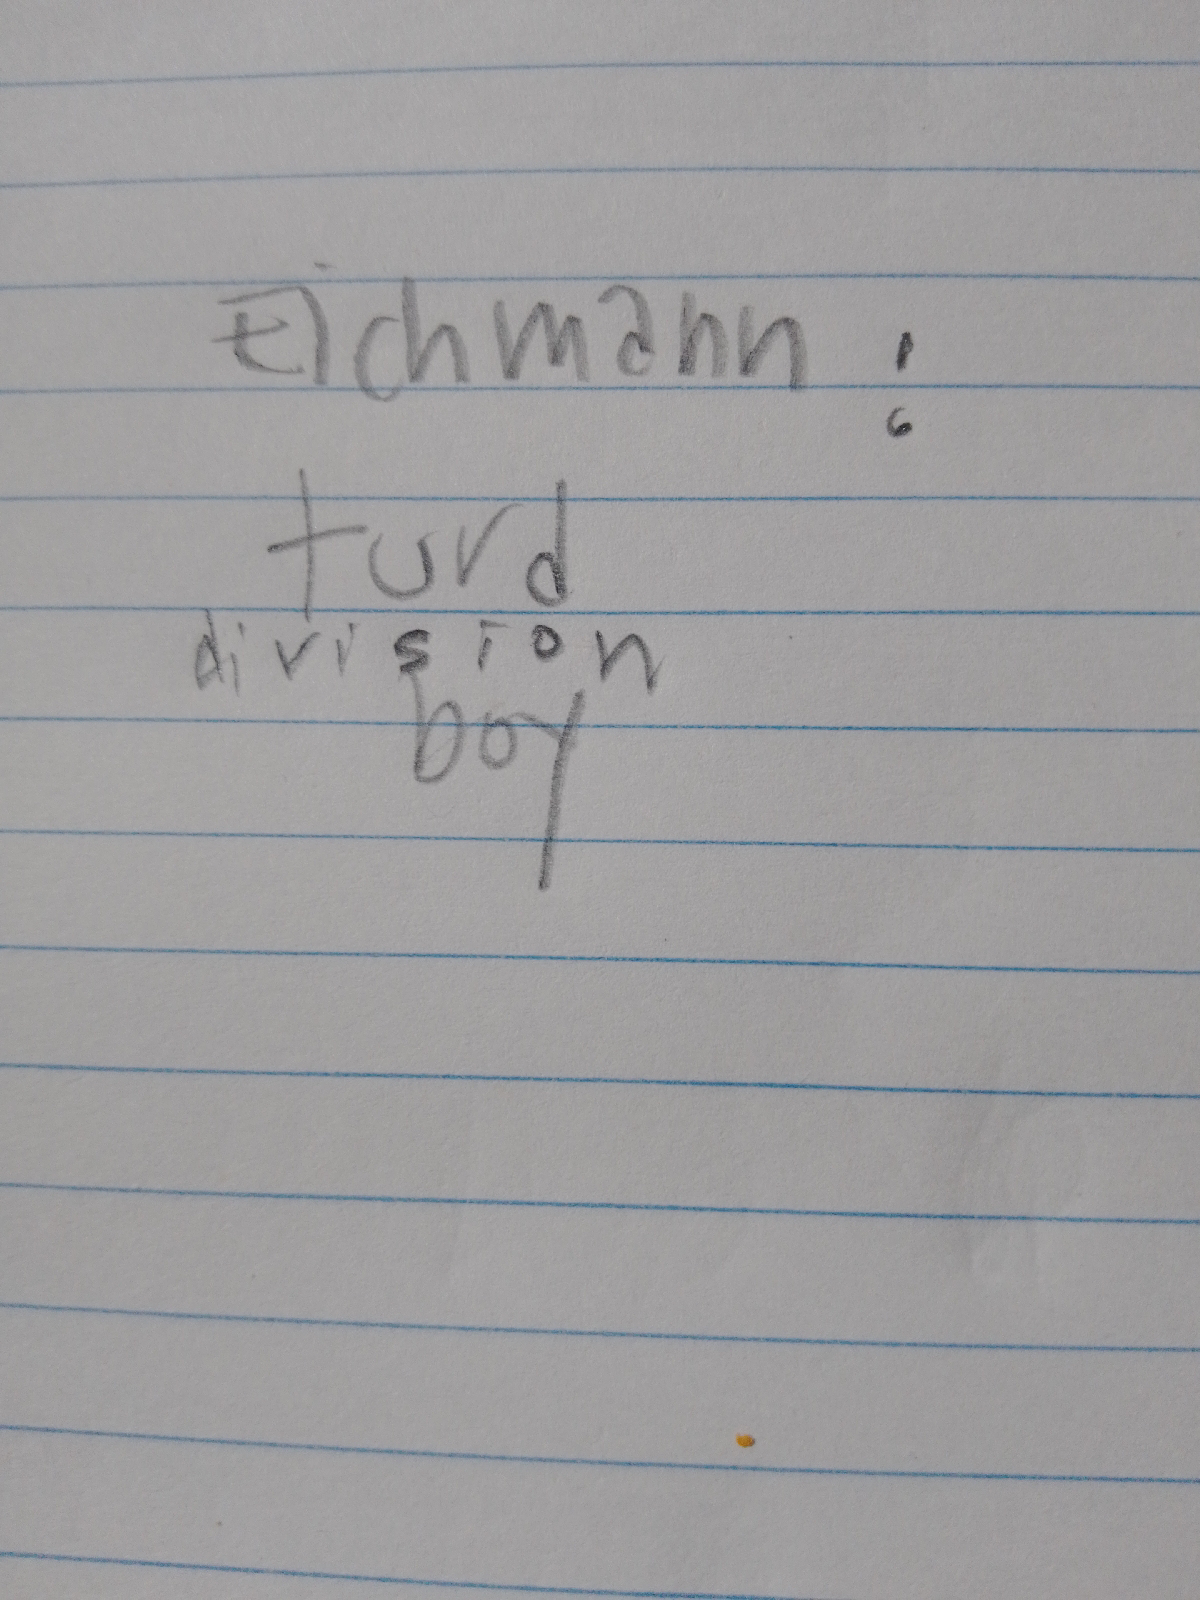 Eichmann :
turd
division
boy